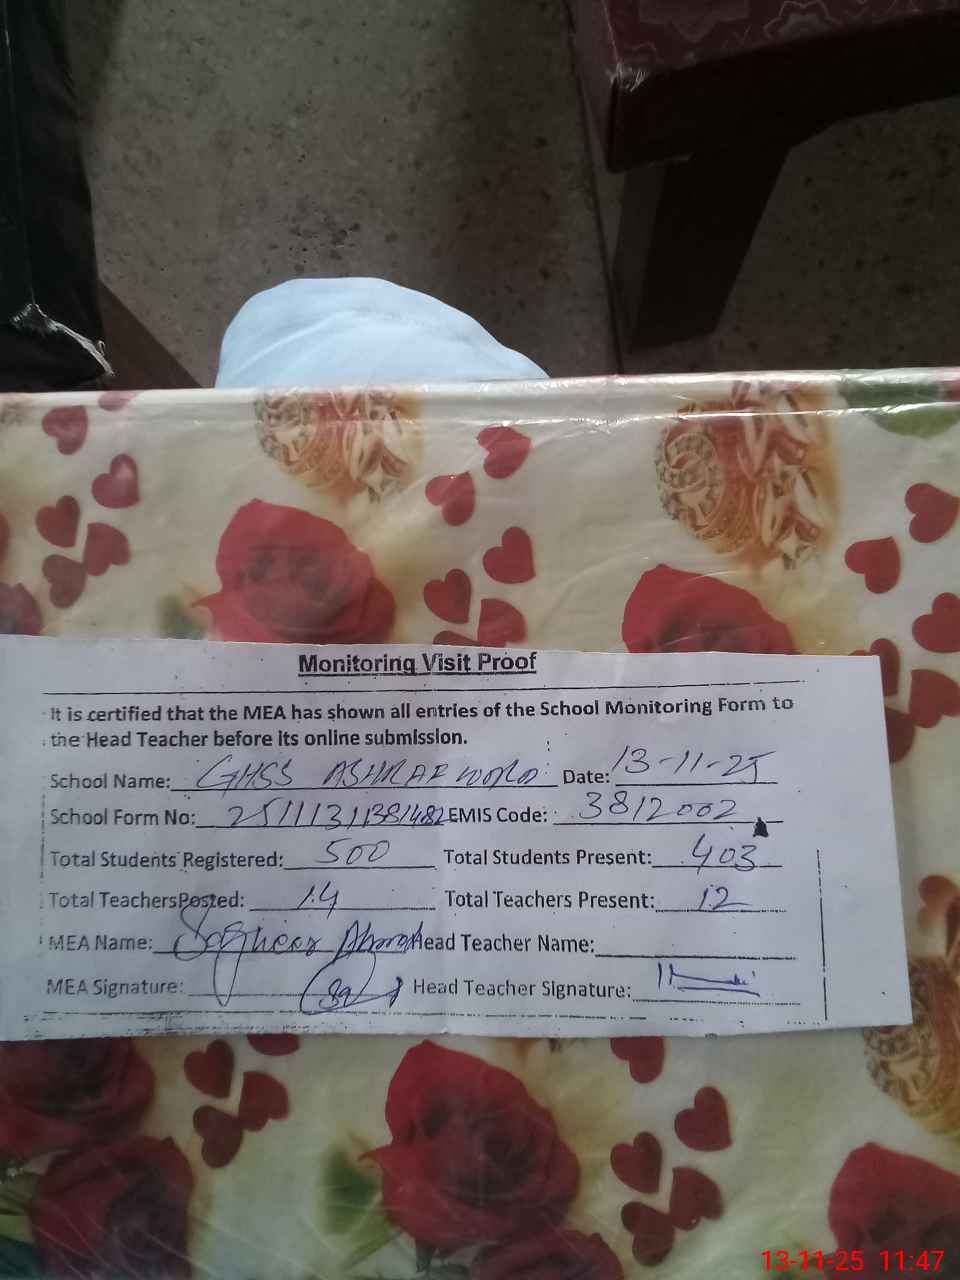 Monitoring Visit Proof
It is certified that the MEA has shown all entries of the School Monitoring Form to
the Head Teacher before its online submission.
School Name: GHSS ASHRAF WORLD Date: 13-11-25
School Form No: EMIS Code: 3812002
Total Students Registered: 500 Total Students Present: 403
Total TeachersPosted: 14 Total Teachers Present: 12
MEA Name: Sagheer Ahmad Head Teacher Name:
MEA Signature: Head Teacher Signature:
13-11-25 11:47